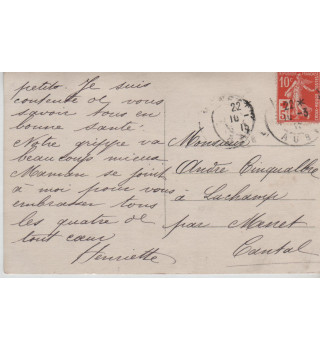 petits. Je suis
contente de vous
savoir tous en
bonne santé.
Notre grippe va
beaucoup mieux.
Maman se joint
à moi pour vous
embrasser tous
les quatre de
tout cœur
Henriette
Monsieur
André Cinqualbre
à Lachamp
par Marcet
Cantal
10c
22
10